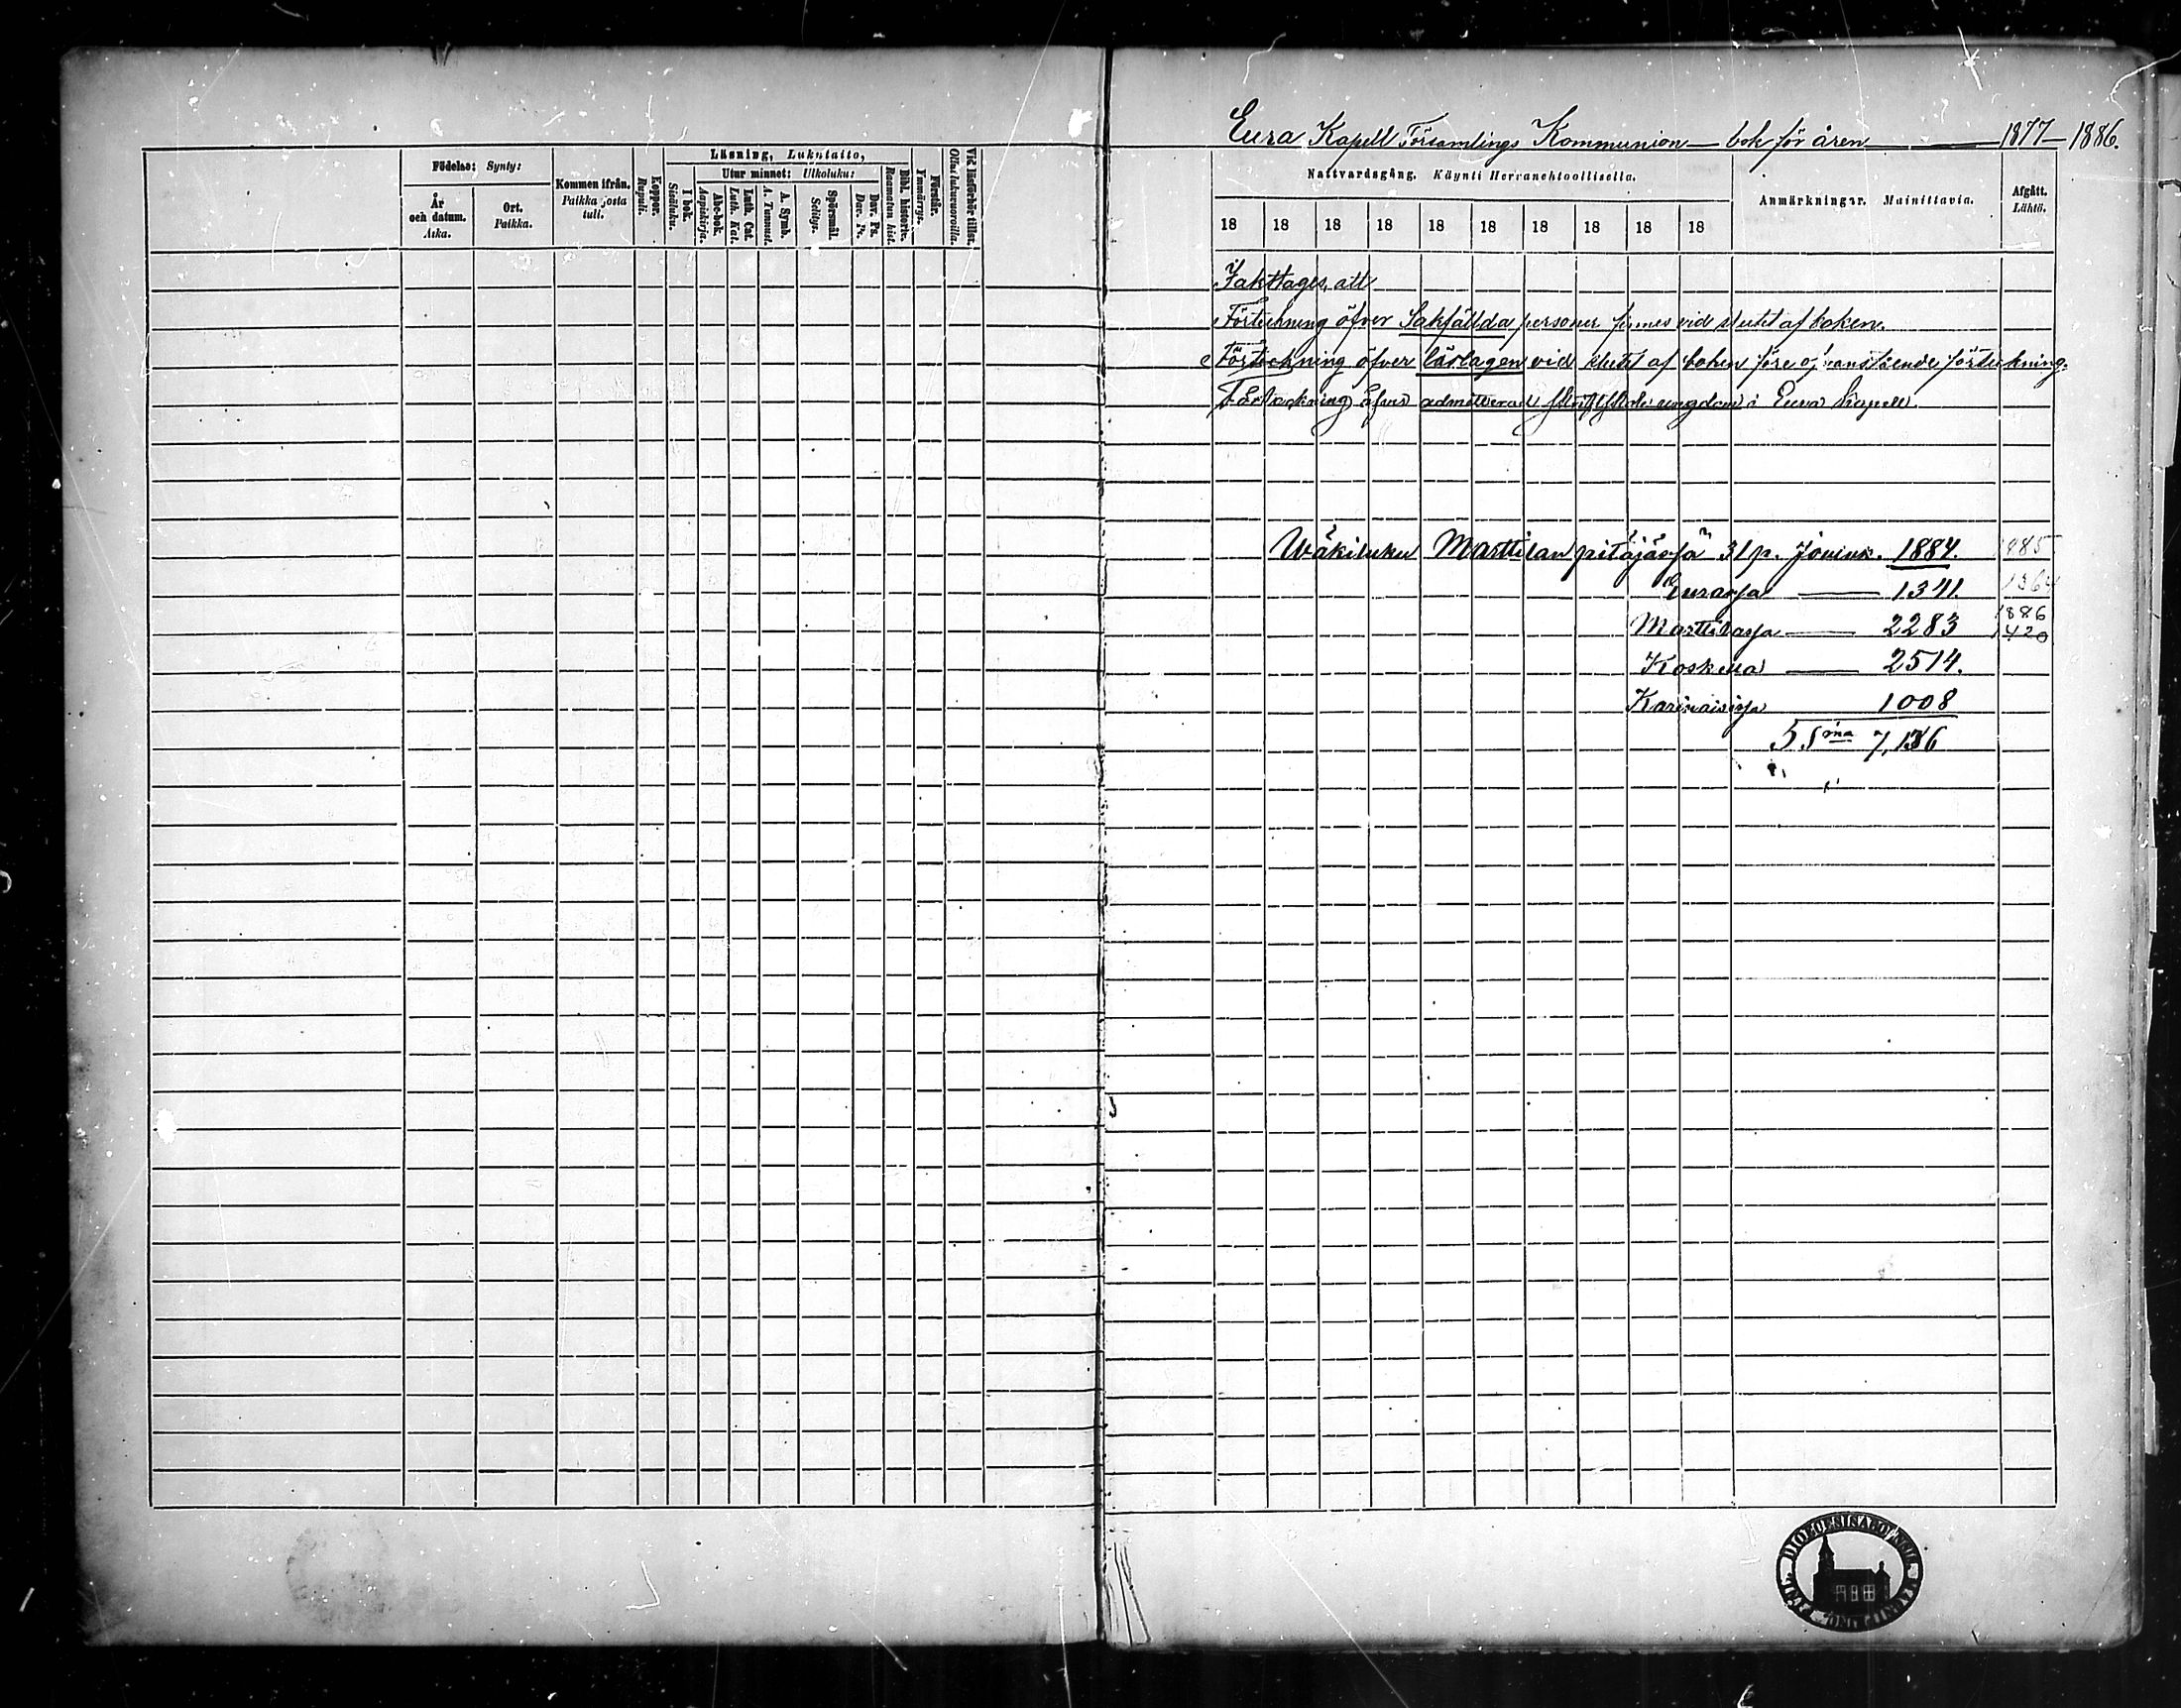 Födelse: Synty:
År och datum. Aika.
Ort. Paikka.
Kommen ifrån. Paikka josta tuli.
Koppor. Rupuli.
Läsning, Lukutaito,
I bok. Sisäluku.
Utur minnet: Ulkoluku:
Abc-bok. Aapiskirja.
Luth. Cat. Luth. Kat.
A. Symb. A. Tunnust.
Spörsmål. Selitys.
Dav. Ps. Dav. Ps.
Bibl. historie. Raamatun hist.
Förstår. Ymmärrys.
Vid läsförhör tillst. Ollut lukuvuoroilla.
Eura Kapell Församlings Kommunion — bok för åren — 1877—1886.
Nattvardsgång. Käynti Herranehtoollisella.
Anmärkningar. Mainittavia.
Afgått. Lähtö.
18 18 18 18 18 18 18 18 18 18
Iakttages, att
Förteckning öfver Sakfällda personer finnes vid slutet af boken.
Förteckning öfver läslagen vid slutet af boken före ofvanstående förteckning.
Förteckning öfver admitterad ungdom i Eura Kapell.
Wäkiluku Marttilan pitäjäsä 31 p. Jouluk. 1884. 1885
Eurassa — 1341. 1364
Marttilassa — 2283 1886 1420
Koskella — 2514.
Karinaisissa 1008
Sma 7,136